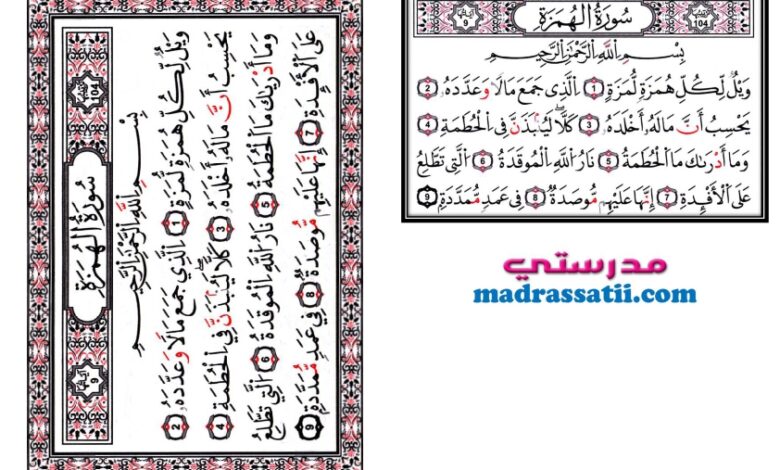 104 سُورَةُ الْهُمَزَةِ 9
بِسْمِ اِللَّهِ اِلرَّحْمَٰنِ اِلرَّحِيمِ
وَيْلٌ لِّكُلِّ هُمَزَةٍ لُّمَزَةٍ 1 اِلَّذِي جَمَعَ مَالًا وَعَدَّدَهُۥ 2
يَحْسِبُ أَنَّ مَالَهُۥ أَخْلَدَهُۥ 3 كَلَّا لَيُنۢبَذَنَّ فِي اِلْحُطَمَةِ 4
وَمَا أَدْرَىٰكَ مَا اَلْحُطَمَةُ 5 نَارُ اُللَّهِ اِلْمُوقَدَةُ 6 اُلَّتِي تَطَّلِعُ
عَلَى اَلْأَفْـِٕدَةِ 7 إِنَّهَا عَلَيْهِم مُّوصَدَةٌ 8 فِي عَمَدٍ مُّمَدَّدَةٍ 9
104 سُورَةُ الْهُمَزَةِ 9
بِسْمِ اِللَّهِ اِلرَّحْمَٰنِ اِلرَّحِيمِ
وَيْلٌ لِّكُلِّ هُمَزَةٍ لُّمَزَةٍ 1 اِلَّذِي جَمَعَ مَالًا وَعَدَّدَهُۥ 2
يَحْسِبُ أَنَّ مَالَهُۥ أَخْلَدَهُۥ 3 كَلَّا لَيُنۢبَذَنَّ فِي اِلْحُطَمَةِ 4
وَمَا أَدْرَىٰكَ مَا اَلْحُطَمَةُ 5 نَارُ اُللَّهِ اِلْمُوقَدَةُ 6 اُلَّتِي تَطَّلِعُ
عَلَى اَلْأَفْـِٕدَةِ 7 إِنَّهَا عَلَيْهِم مُّوصَدَةٌ 8 فِي عَمَدٍ مُّمَدَّدَةٍ 9
مدرستي
madrassatii.com